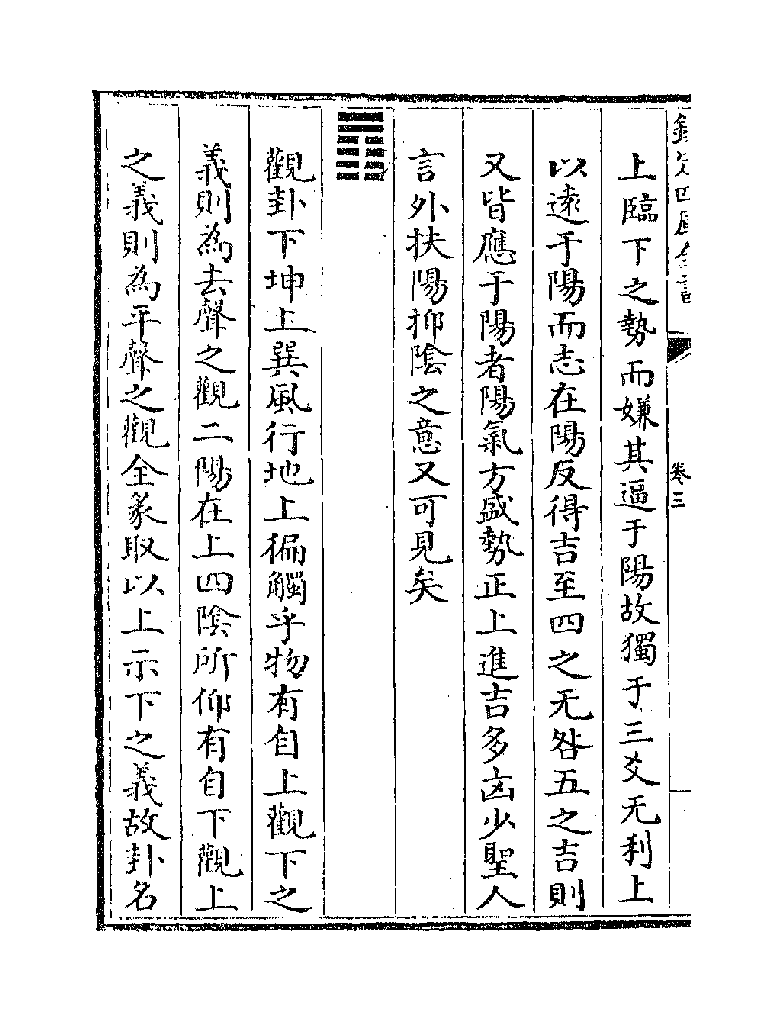 欽定四庫全書
卷三
上臨下之勢而嫌其逼于陽故獨于三爻无利上
以遠于陽而志在陽反得吉至四之无咎五之吉則
又皆應于陽者陽氣方盛勢正上進吉多凶少聖人
言外扶陽抑陰之意又可見矣
觀卦下坤上巽風行地上徧觸乎物有自上觀下之
義則為去聲之觀二陽在上四陰所仰有自下觀上
之義則為平聲之觀全彖取以上示下之義故卦名